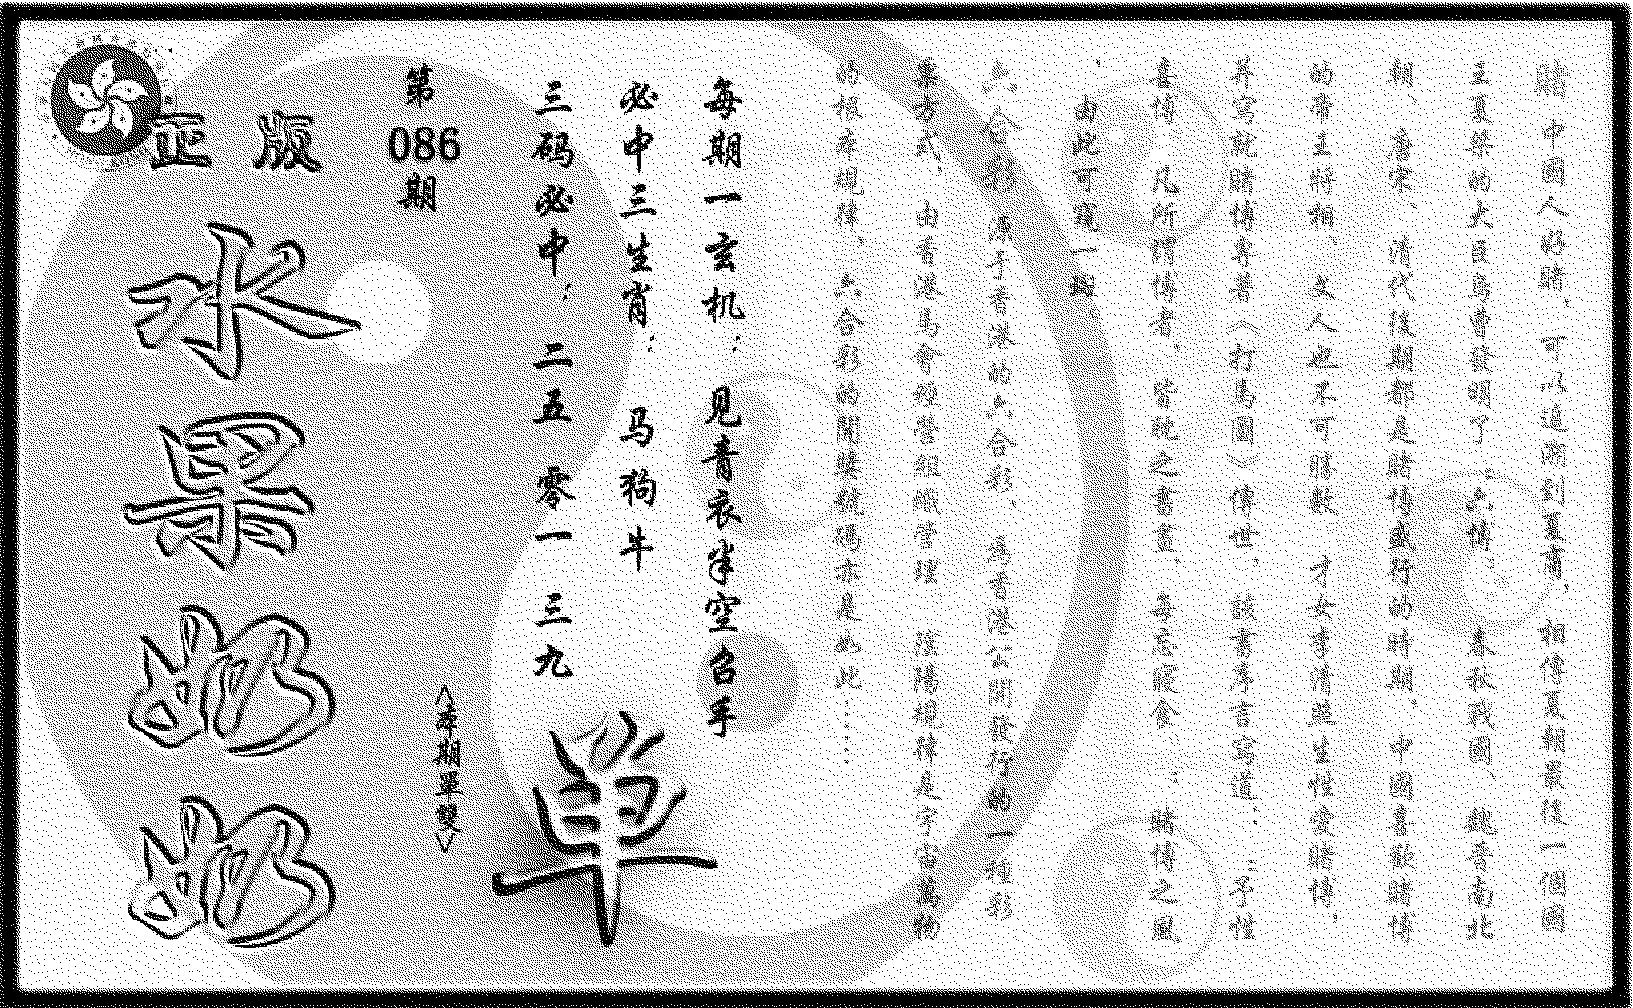 賭中國人好賭，可以追溯到夏商，相傳夏朝最後一個國
王夏桀的大臣烏曹發明了“六博，春秋戰國、魏晉南北
朝、唐宋、清代後期都是賭博盛行的時期，中國喜歡賭博
的帝王將相、文人也不可勝數，才女李清照生性愛賭博，
并寫就賭博專著〈打馬圖〉傳世，該書序言寫道：“予性
喜博，凡所謂博者，皆耽之晝夜，每忘寢食”；賭博之風
，由此可窺一斑
六合彩，源于香港的六合彩、是香港公開發行的一種彩
票方式，由香港馬會經營組織管理 陰陽規律是宇宙萬物
的根本規律，六合彩的開獎號碼亦是如此……
每期一玄机：见青衣半空召手
必中三生肖：马狗牛
三码必中：二五 零一 三九
第086期
正版
水果奶奶
〈本期單雙〉
单